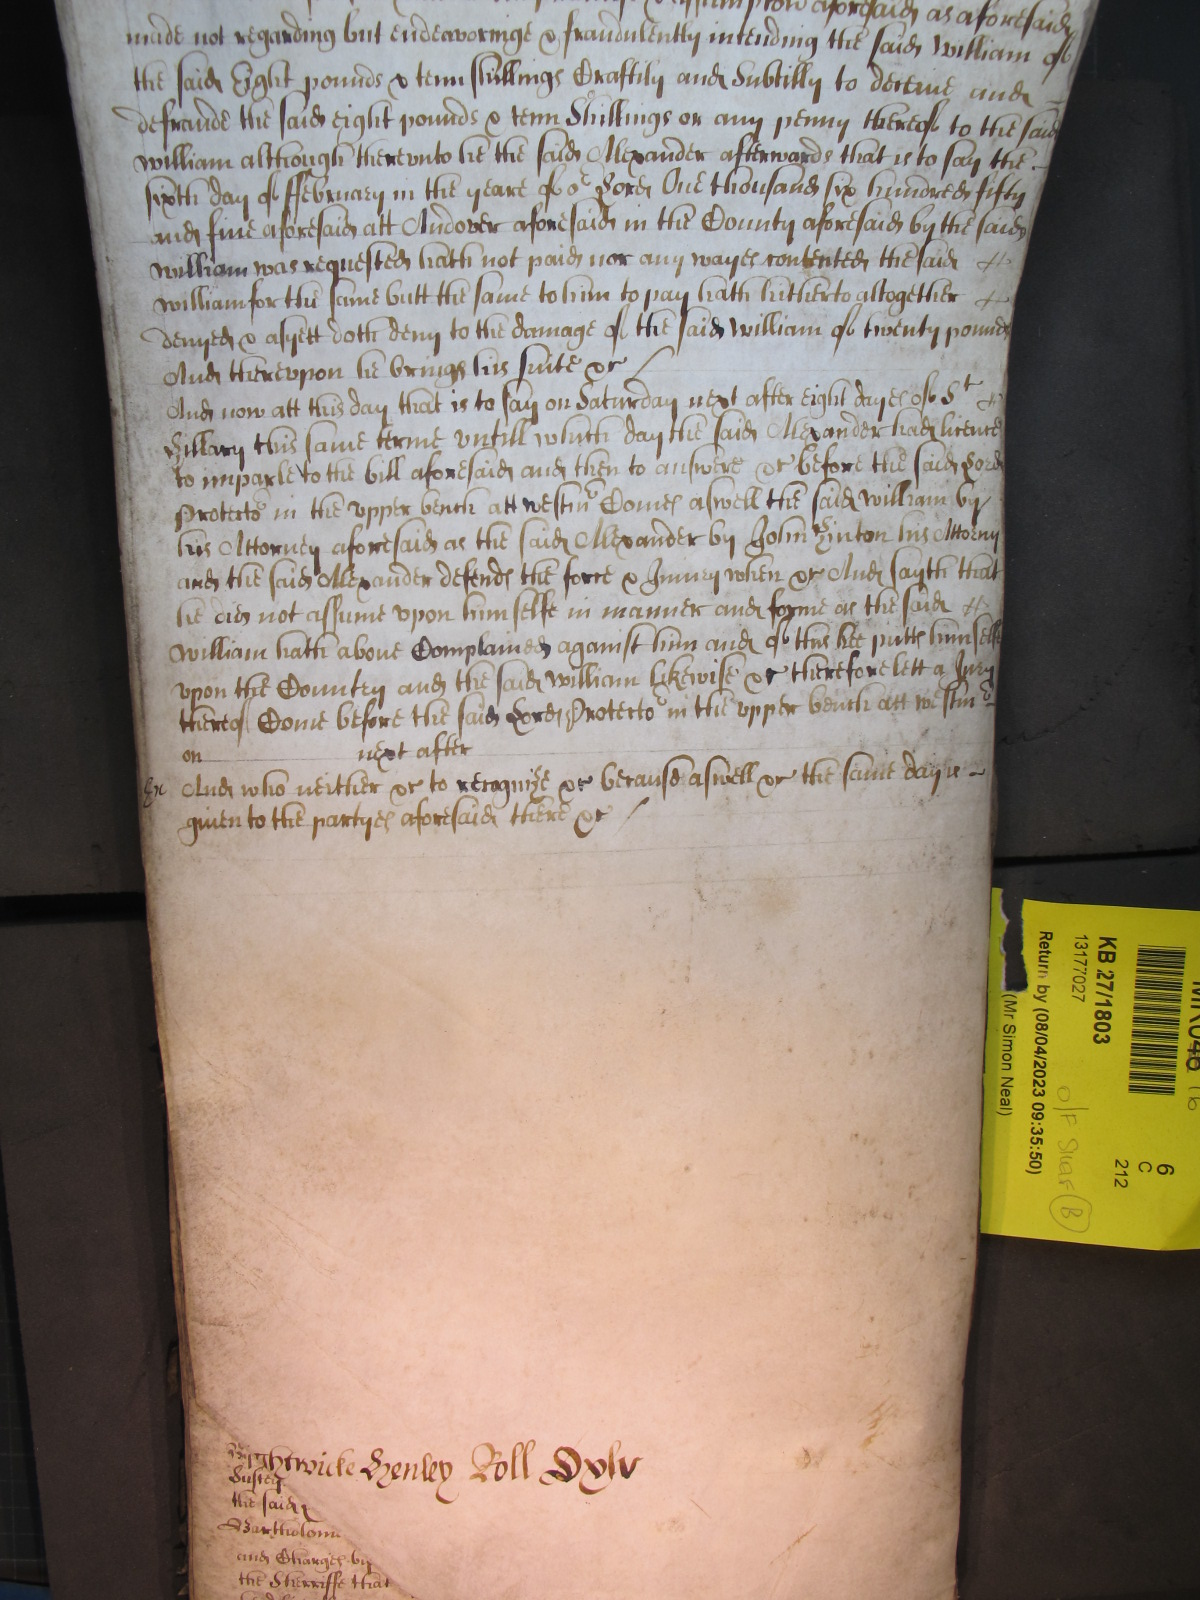 Assumpton aforesaid as aforesaid
made not regarding but endeavoringe & fraudulently intending the said William of
the said Eight pounds & tenn shillings Craftily and Subtilly to deceive and
defraude the said eight pounds & tenn Shillings or any penny thereof to the said
William although therevnto he the said Alexander afterwards that is to say the
sixth day of ffebruary in the yeare of or Lord One thousand six hundred fifty
and five aforesaid att Andover aforesaid in the County aforesaid by the said
William was requested hath not paid nor any wayes contented the said
William for the same butt the same to him to pay hath hitherto altogether
denyed & asyett doth deny to the damage of the said William of twenty pounds
And therevpon he brings his suite &c
And now att this day that is to say on Saturday next after eight dayes of St
Hillary this same terme vntill which day the said Alexander had licence
to imparle to the bill aforesaid and then to answere &c before the said Lord
Protector in the vpper bench att westmr Comes aswell the said William by
his Attorney aforesaid as the said Alexander by John Hinton his Attorny
and the said Alexander defends the force & Iniury when &c And sayth that
he did not assume vpon himselfe in manner and forme as the said
William hath above Complained against him and of this hee putts himselfe
vpon the Country and the said William likewise &c therefore lett a Jury
thereof Come before the said Lord Protector in the vpper bench att westmr
on next after
And who neither &c to recognize &c because aswell &c the same day is
given to the partyes aforesaid there &c
Wightwicke Henley Roll Dxlv
the said
Bartholom
and Charges by
the Sherriffe that
KB 27/1803
13177027
Return by (08/04/2023 09:35:50)
(Mr Simon Neal)
6
C
212
O/F Shelf B